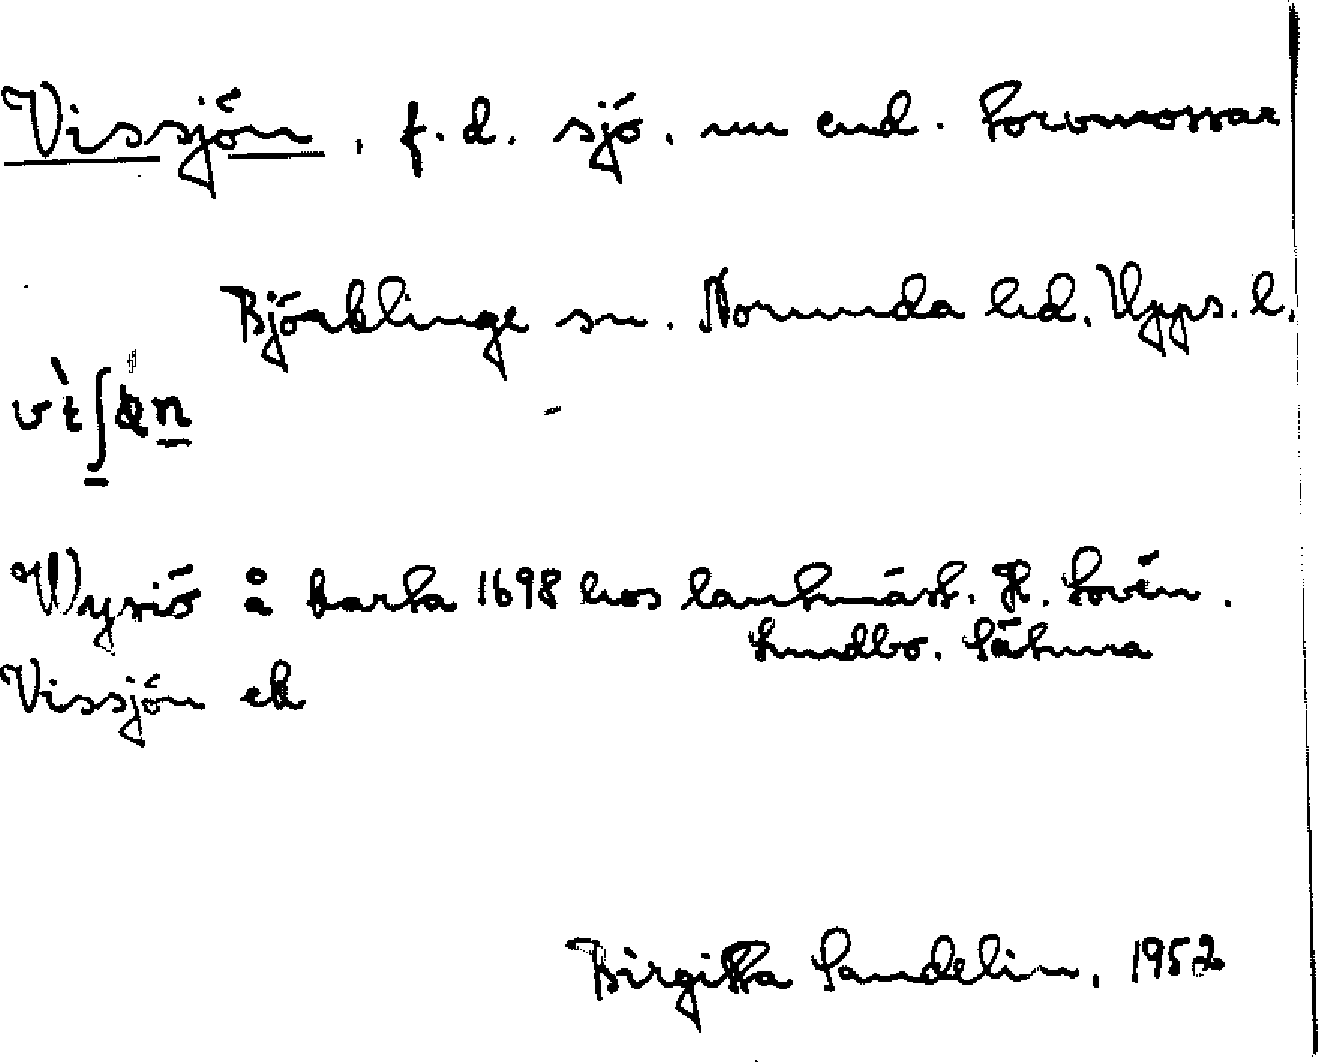 Vissjön, f.d. sjö, nu end. torvmossar
Björklinge sn. Norunda hd. Upps. l.
Wysiö å karta 1698 hos lantmäst. H. Lovén.
Lundbo. Låtuna
Vissjön ek
Birgitta Sandelin, 1952